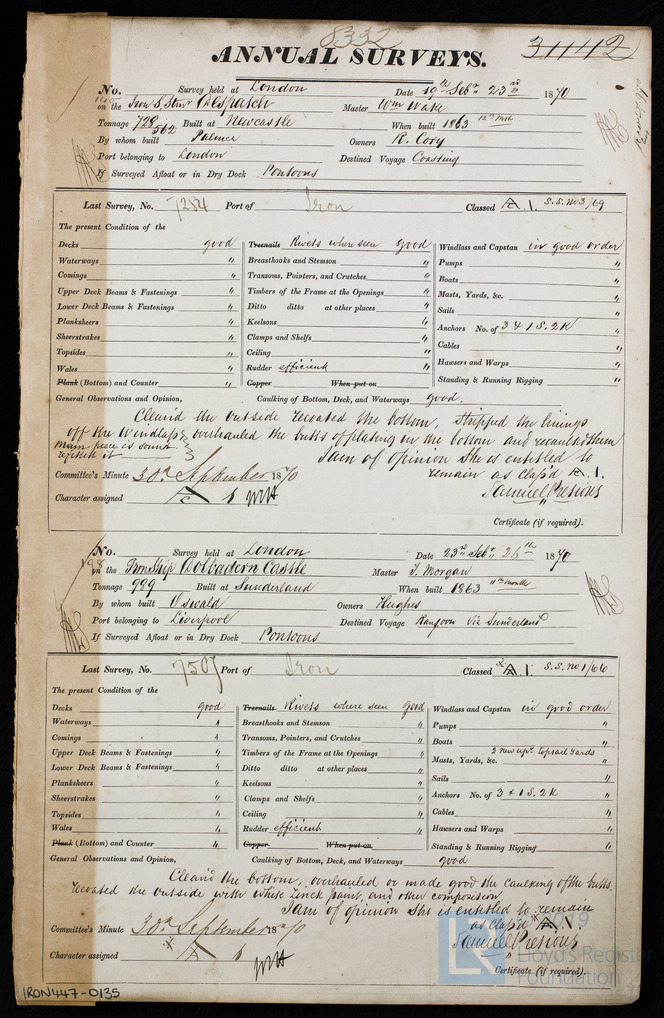 8332
ANNUAL SURVEYS.
31142
No. Survey held at London Date 19th Sebr 23rd 1870
on the Iron S. Stmr Despatch Master Wm Wake
Tonnage 728 562 Built at Newcastle When built 1863 12th Mth
By whom built Palmer Owners R. Cory
Port belonging to London Destined Voyage Coasting
If Surveyed Afloat or in Dry Dock Pontoons
Last Survey, No. 7284 Port of Iron Classed A 1. S.S. No 3/69
The present Condition of the
Decks good
Waterways "
Comings "
Upper Deck Beams & Fastenings "
Lower Deck Beams & Fastenings "
Planksheers "
Sheerstrakes "
Topsides "
Wales "
Plank (Bottom) and Counter "
Treenails Rivets where seen good
Breasthooks and Stemson "
Transoms, Pointers, and Crutches "
Timbers of the Frame at the Openings "
Ditto ditto at other places "
Keelsons "
Clamps and Shelfs "
Ceiling "
Rudder efficient
Copper When put on
Windlass and Capstan in good order
Pumps "
Boats "
Masts, Yards, &c. "
Sails "
Anchors No. of 3 & 1 S. 2K "
Cables "
Hawsers and Warps "
Standing & Running Rigging "
General Observations and Opinion, Caulking of Bottom, Deck, and Waterways good.
Clean'd the outside recoated the bottom, stripped the linings
off the Windlass overhauled the butts of plating in the bottom and recaulked them
Main piece is sound
refitted it
I am of opinion She is entitled to
remain as class'd A 1.
Committee's Minute 30th September 1870
Samuel Presious
Character assigned A 1
Certificate (if required).
No. Survey held at London Date 23rd Sebr 26th 1870
on the Iron Ship Dolbadern Castle Master J. Morgan
Tonnage 999 Built at Sunderland When built 1863 11th Month
By whom built Oswald Owners Hughes
Port belonging to Liverpool Destined Voyage Rangoon Via Sunderland
If Surveyed Afloat or in Dry Dock Pontoons
Last Survey, No. 7507 Port of Iron Classed A 1. S.S. No 1/66
The present Condition of the
Decks good
Waterways "
Comings "
Upper Deck Beams & Fastenings "
Lower Deck Beams & Fastenings "
Planksheers "
Sheerstrakes "
Topsides "
Wales "
Plank (Bottom) and Counter "
Treenails Rivets where seen good
Breasthooks and Stemson "
Transoms, Pointers, and Crutches "
Timbers of the Frame at the Openings "
Ditto ditto at other places "
Keelsons "
Clamps and Shelfs "
Ceiling "
Rudder efficient "
Copper When put on
Windlass and Capstan in good order
Pumps "
Boats "
2 new upr topsail yards
Masts, Yards, &c.
Sails "
Anchors No. of 3 & 1 S. 2K "
Cables "
Hawsers and Warps "
Standing & Running Rigging "
General Observations and Opinion, Caulking of Bottom, Deck, and Waterways good
Clean'd the bottom, overhauled or made good the caulking of the butts.
recoated the outside with white Zinck paint, and other composition.
I am of opinion She is entitled to remain
as class'd A 1.
Committee's Minute 30th September 1870
Samuel Presious
Character assigned A 1
Certificate (if required).
2019
Lloyd's Register
Foundation
IRON447-0135